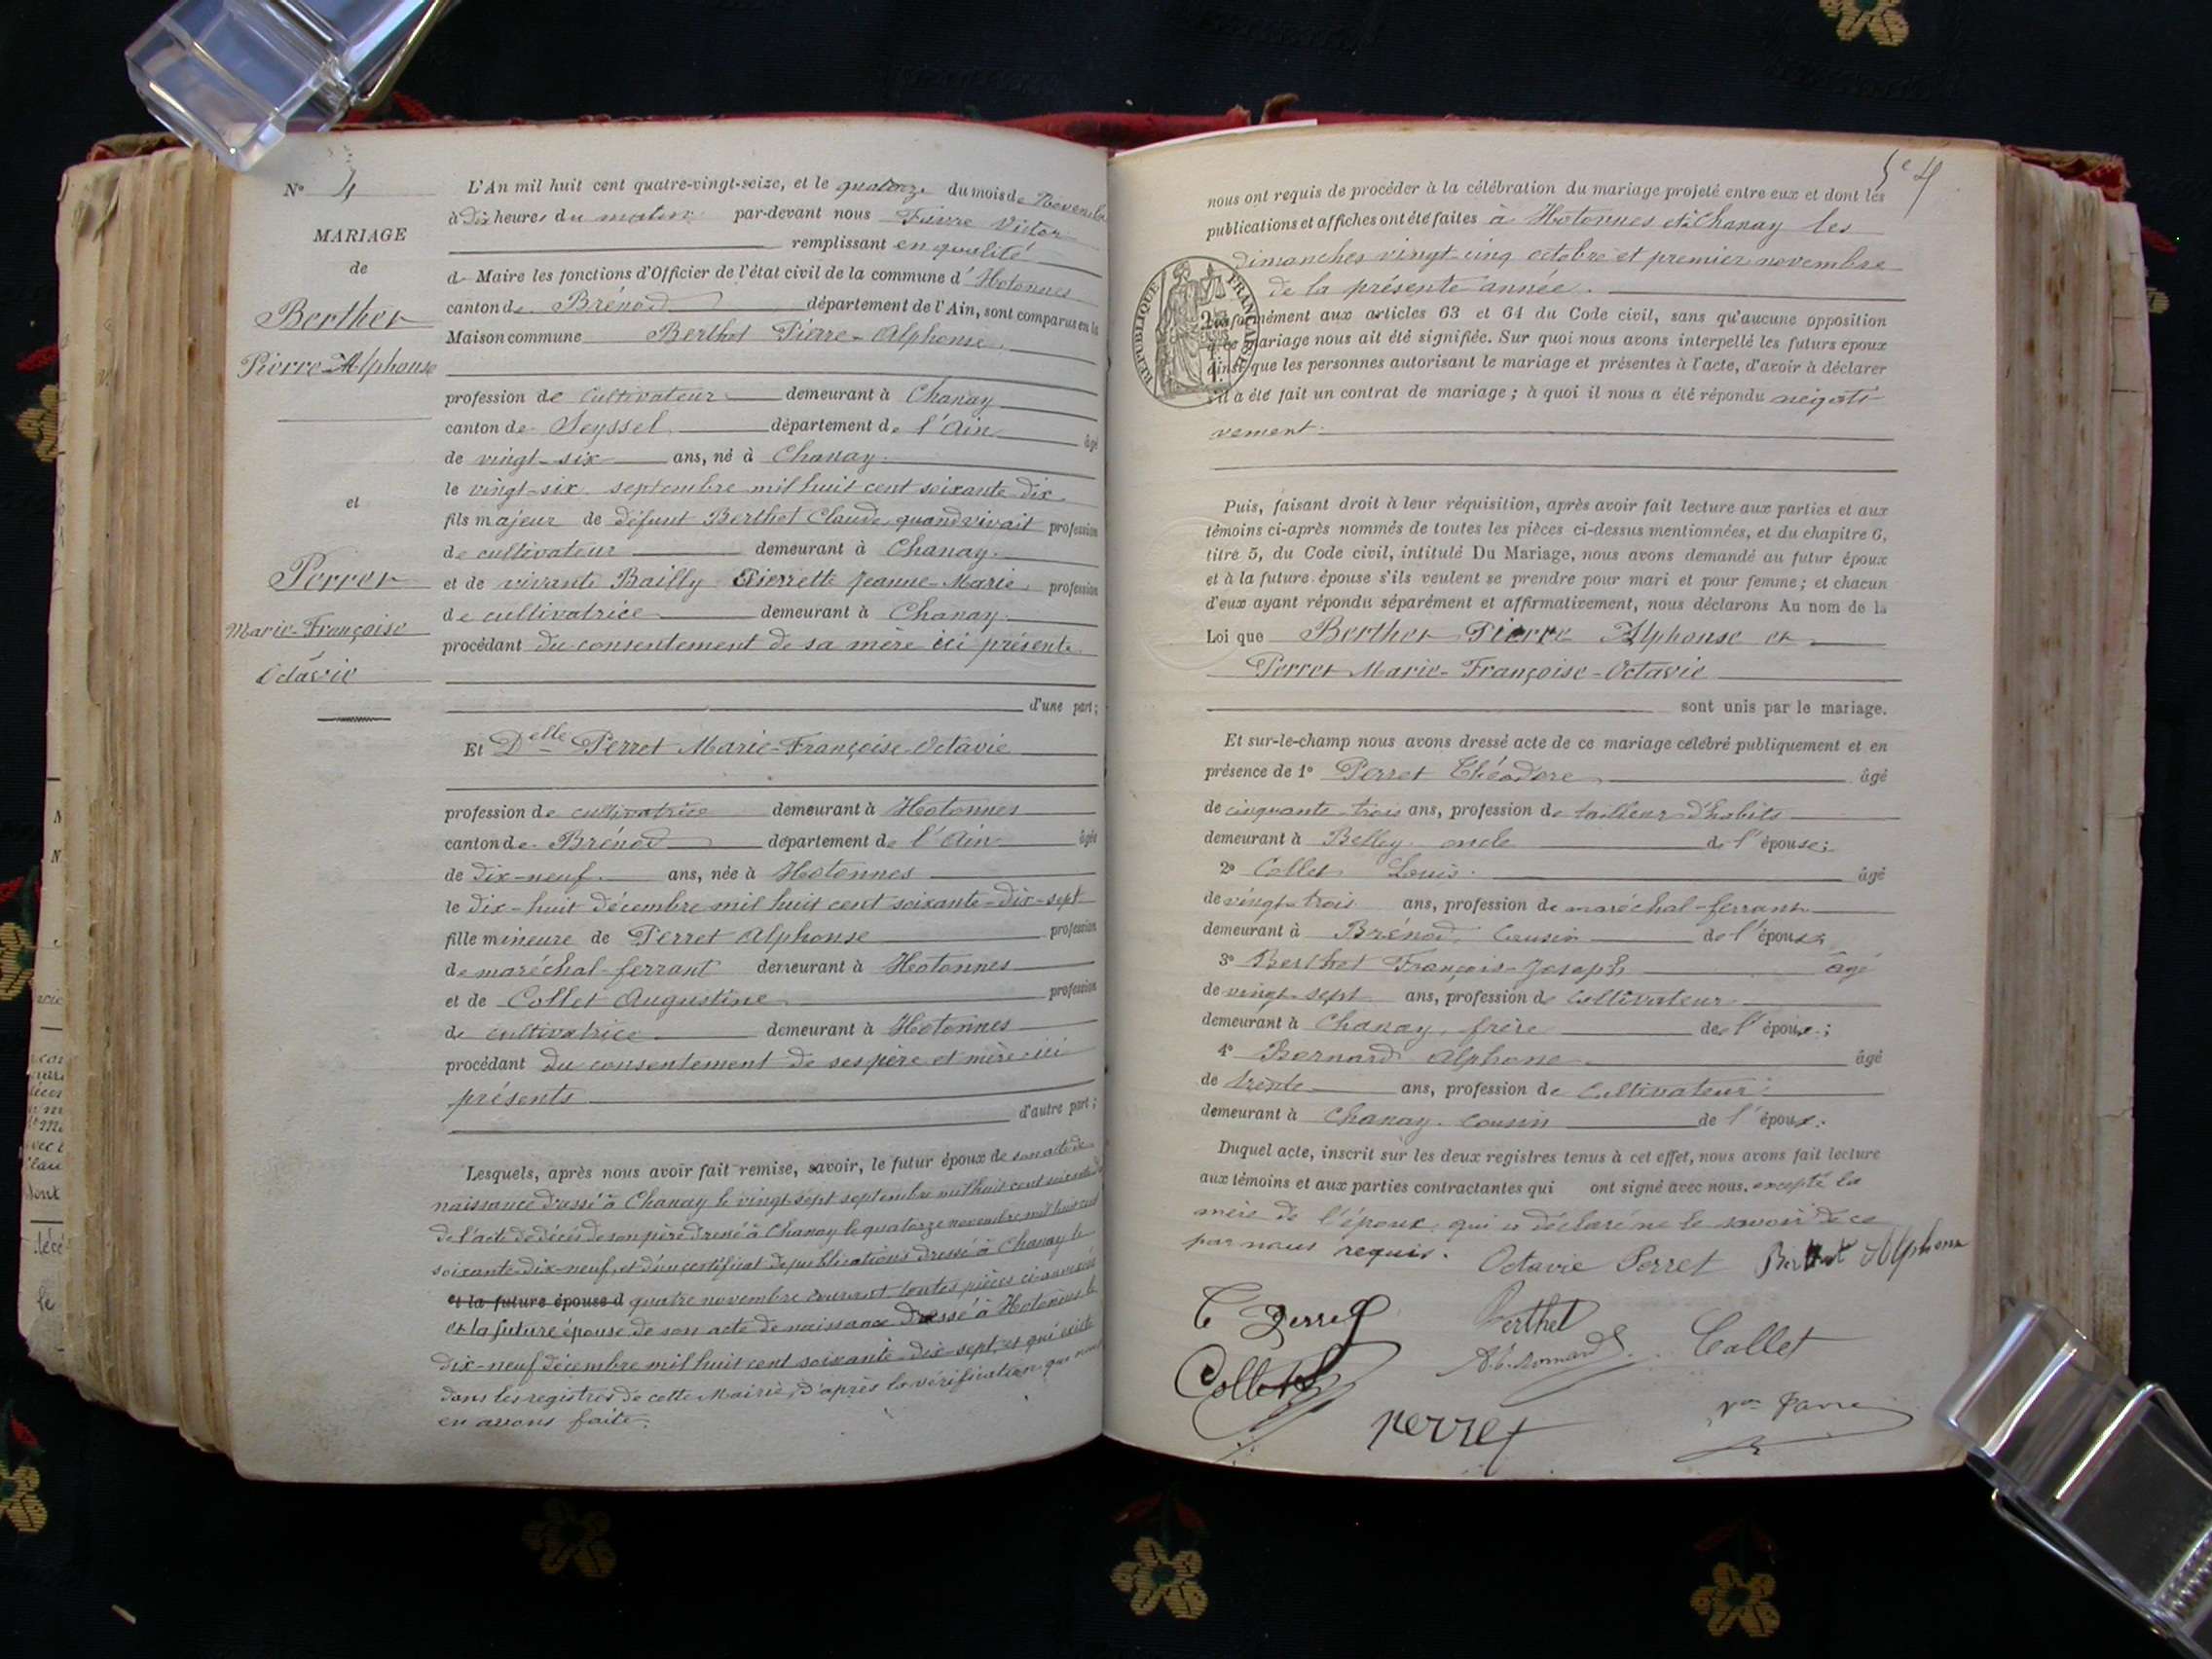 N° 4
MARIAGE
de
Berthet
Pierre-Alphonse
et
Perret
Marie-Françoise
Octavie
L'An mil huit cent quatre-vingt-seize, et le quatorze du mois de Novembre
à dix heures du matin par-devant nous Favre Victor
remplissant en qualité
de Maire les fonctions d'Officier de l'état civil de la commune d'Hotonnes
canton de Brénod département de l'Ain, sont comparus en la
Maison commune Berthet Pierre-Alphonse
profession de cultivateur demeurant à Chanay
canton de Seyssel département de l'Ain âgé
de vingt-six ans, né à Chanay
le vingt-six septembre mil huit cent soixante dix
fils majeur de défunt Berthet Claude quand vivait profession
de cultivateur demeurant à Chanay
et de vivante Bailly Pierrette Jeanne-Marie profession
de cultivatrice demeurant à Chanay
procédant du consentement de sa mère ici présente
d'une part;
Et Delle Perret Marie-Françoise-Octavie
profession de cultivatrice demeurant à Hotonnes
canton de Brénod département de l'Ain âgée
de dix-neuf ans, née à Hotonnes
le dix-huit décembre mil huit cent soixante-dix-sept
fille mineure de Perret Alphonse profession
de maréchal-ferrant demeurant à Hotonnes
et de Collet Augustine profession
de cultivatrice demeurant à Hotonnes
procédant du consentement de ses père et mère ici
présents
d'autre part;
Lesquels, après nous avoir fait remise, savoir, le futur époux de son acte de
naissance dressé à Chanay le vingt-sept septembre mil huit cent soixante-dix
de l'acte de décès de son père dressé à Chanay le quatorze novembre mil huit cent
soixante-dix-neuf, et d'un certificat de publications dressé à Chanay le
et la future épouse d quatre novembre courant toutes pièces ci-annexées
et la future épouse de son acte de naissance dressé à Hotonnes le
dix-neuf décembre mil huit cent soixante-dix-sept et qui existe
dans les registres de cette Mairie, d'après la vérification que nous
en avons faite.
54
nous ont requis de procéder à la célébration du mariage projeté entre eux et dont les
publications et affiches ont été faites à Hotonnes et à Chanay les
dimanches vingt-cinq octobre et premier novembre
de la présente année.
RÉPUBLIQUE FRANÇAISE
Conformément aux articles 63 et 64 du Code civil, sans qu'aucune opposition
à ce mariage nous ait été signifiée. Sur quoi nous avons interpellé les futurs époux
ainsi que les personnes autorisant le mariage et présentes à l'acte, d'avoir à déclarer
s'il a été fait un contrat de mariage; à quoi il nous a été répondu négati-
vement.
Puis, faisant droit à leur réquisition, après avoir fait lecture aux parties et aux
témoins ci-après nommés de toutes les pièces ci-dessus mentionnées, et du chapitre 6,
titre 5, du Code civil, intitulé Du Mariage, nous avons demandé au futur époux
et à la future épouse s'ils veulent se prendre pour mari et pour femme; et chacun
d'eux ayant répondu séparément et affirmativement, nous déclarons Au nom de la
Loi que Berthet Pierre Alphonse et
Perret Marie-Françoise-Octavie
sont unis par le mariage.
Et sur-le-champ nous avons dressé acte de ce mariage célébré publiquement et en
présence de 1° Perret Théodore âgé
de cinquante-trois ans, profession de tailleur d'habits
demeurant à Belley oncle de l'épouse;
2° Collet Louis âgé
de vingt-trois ans, profession de maréchal-ferrant
demeurant à Brénod, Cousin de l'épouse
3° Berthet François-Joseph âgé
de vingt-sept ans, profession de Cultivateur
demeurant à Chanay, frère de l'époux;
4° Bernard Alphonse âgé
de trente ans, profession de Cultivateur
demeurant à Chanay. Cousin de l'époux.
Duquel acte, inscrit sur les deux registres tenus à cet effet, nous avons fait lecture
aux témoins et aux parties contractantes qui ont signé avec nous. excepté la
mère de l'époux qui a déclaré ne le savoir de ce
par nous requis. Octavie Perret Berthet Alphonse
T Perret Berthet
Collet
Collet
perret
Vor Favre